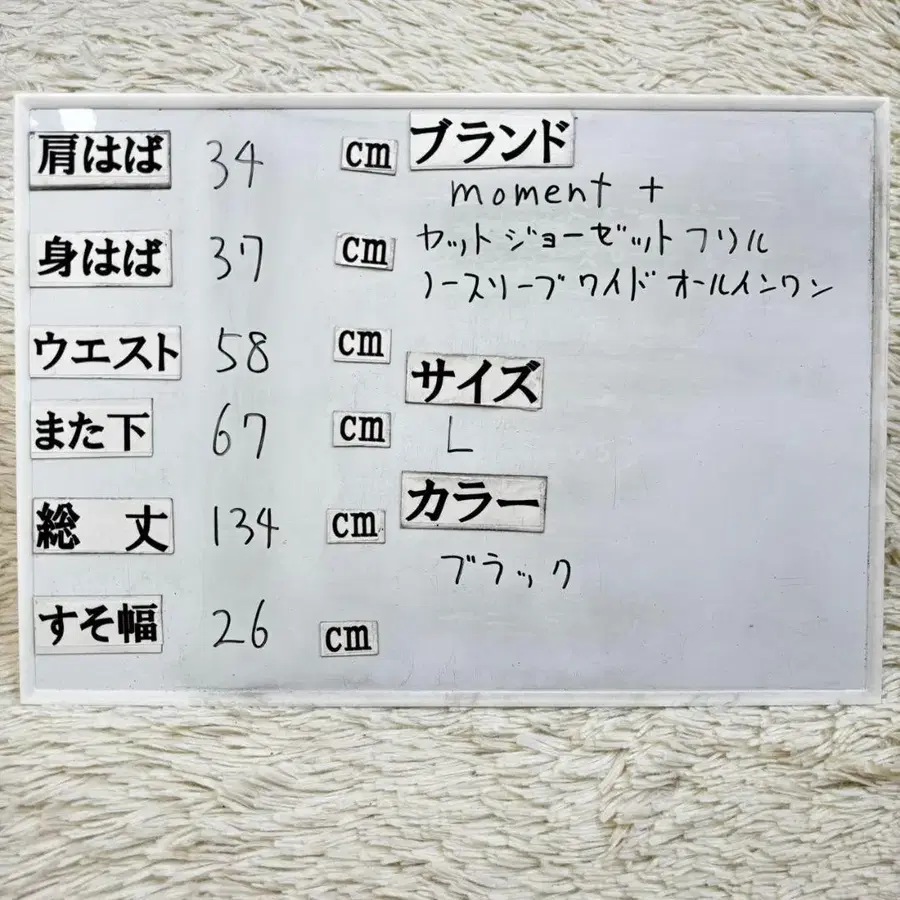 肩はば 34 cm
身はば 37 cm
ウエスト 58 cm
また下 67 cm
総 丈 134 cm
すそ幅 26 cm
ブランド
moment +
カットジョーゼットフリル
ノースリーブワイドオールインワン
サイズ
L
カラー
ブラック